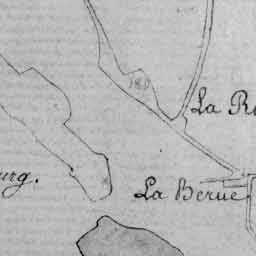 La R
urg.
La Berue